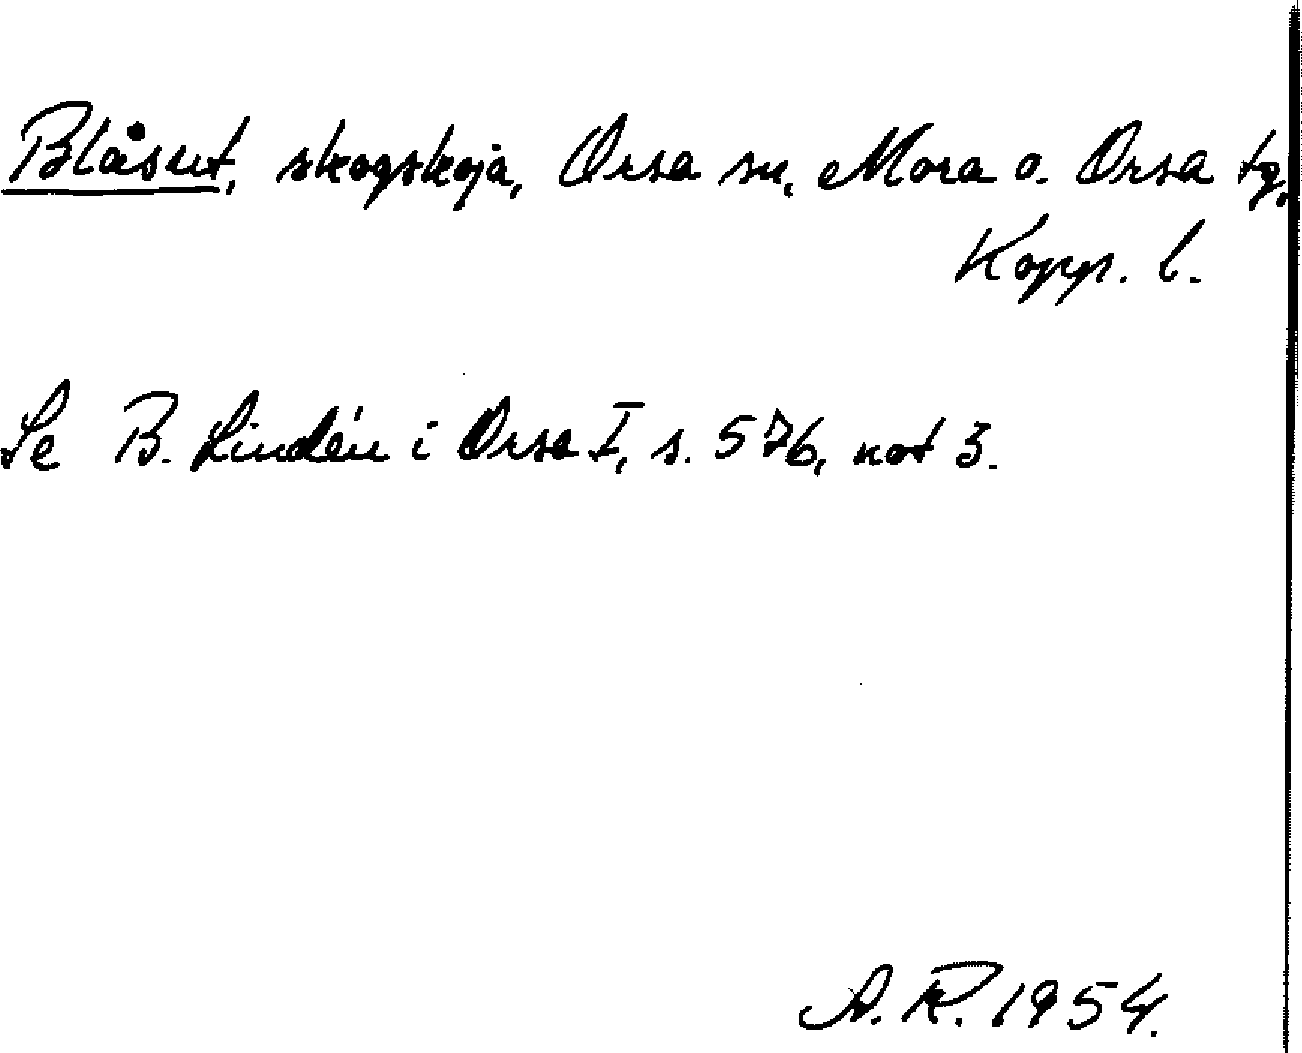 Blåsut, skogskoja, Orsa sn, Mora o. Orsa tg,
Kopp. l.
Se B. Lindén i Orsa I, s. 576, not 3.
A.R. 1954.